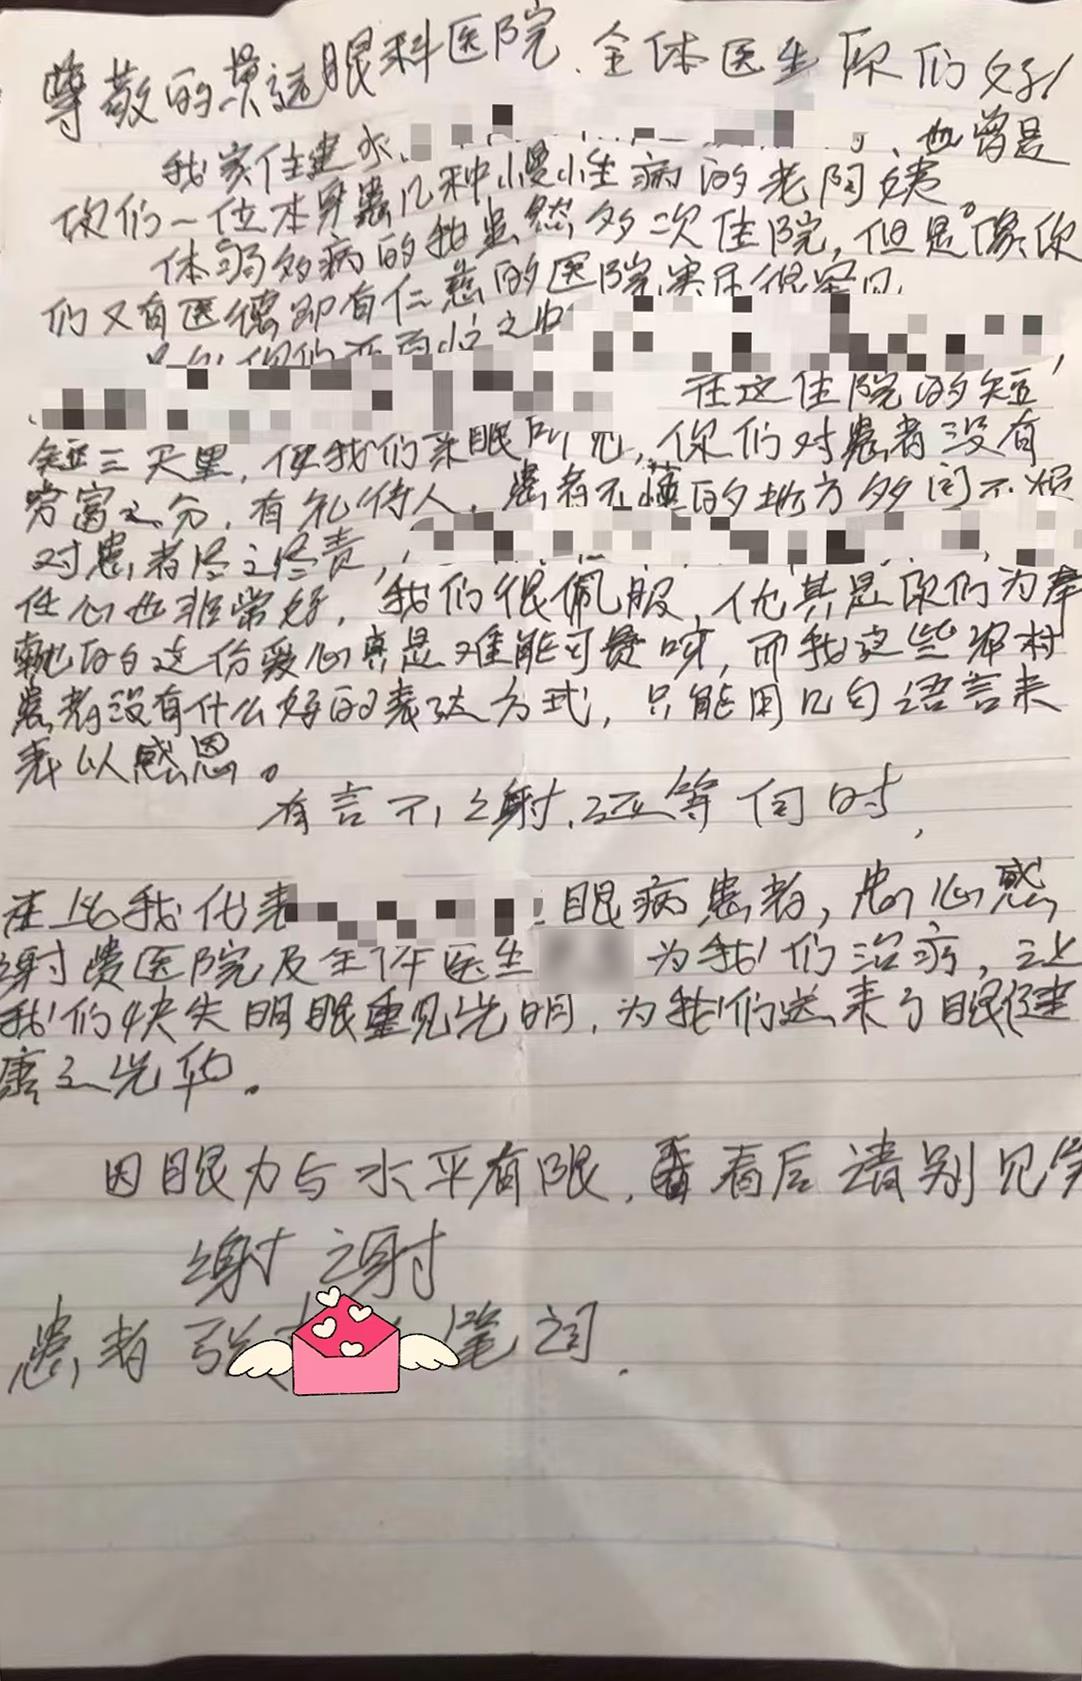 尊敬的景远眼科医院、全体医生你们好!
我家住建水、也曾是
你们一位本身患几种慢性病的老阿姨
体弱多病的我虽然多次住院,但是像你
们又有医德即有仁慈的医院实属很罕见,
你们
在这住院的短
短三天里,使我们亲眼所见,你们对患者没有
穷富之分,有礼待人,患者不懂的地方多问不烦
对患者尽之尽责,
任心也非常好,我们很佩服,尤其是你们为奉
献的这份爱心真是难能可贵呀,而我这些农村
患者没有什么好的表达方式,只能用几句语言来
表以感恩。
有言不谢,还等何时,
在此我代表眼病患者,忠心感
谢贵医院及全体医生为我们治病,让
我们快失明眼重见光明,为我们送来了眼健
康之光华。
因眼力与水平有限,看后请别见笑
谢谢
患者张笔词.